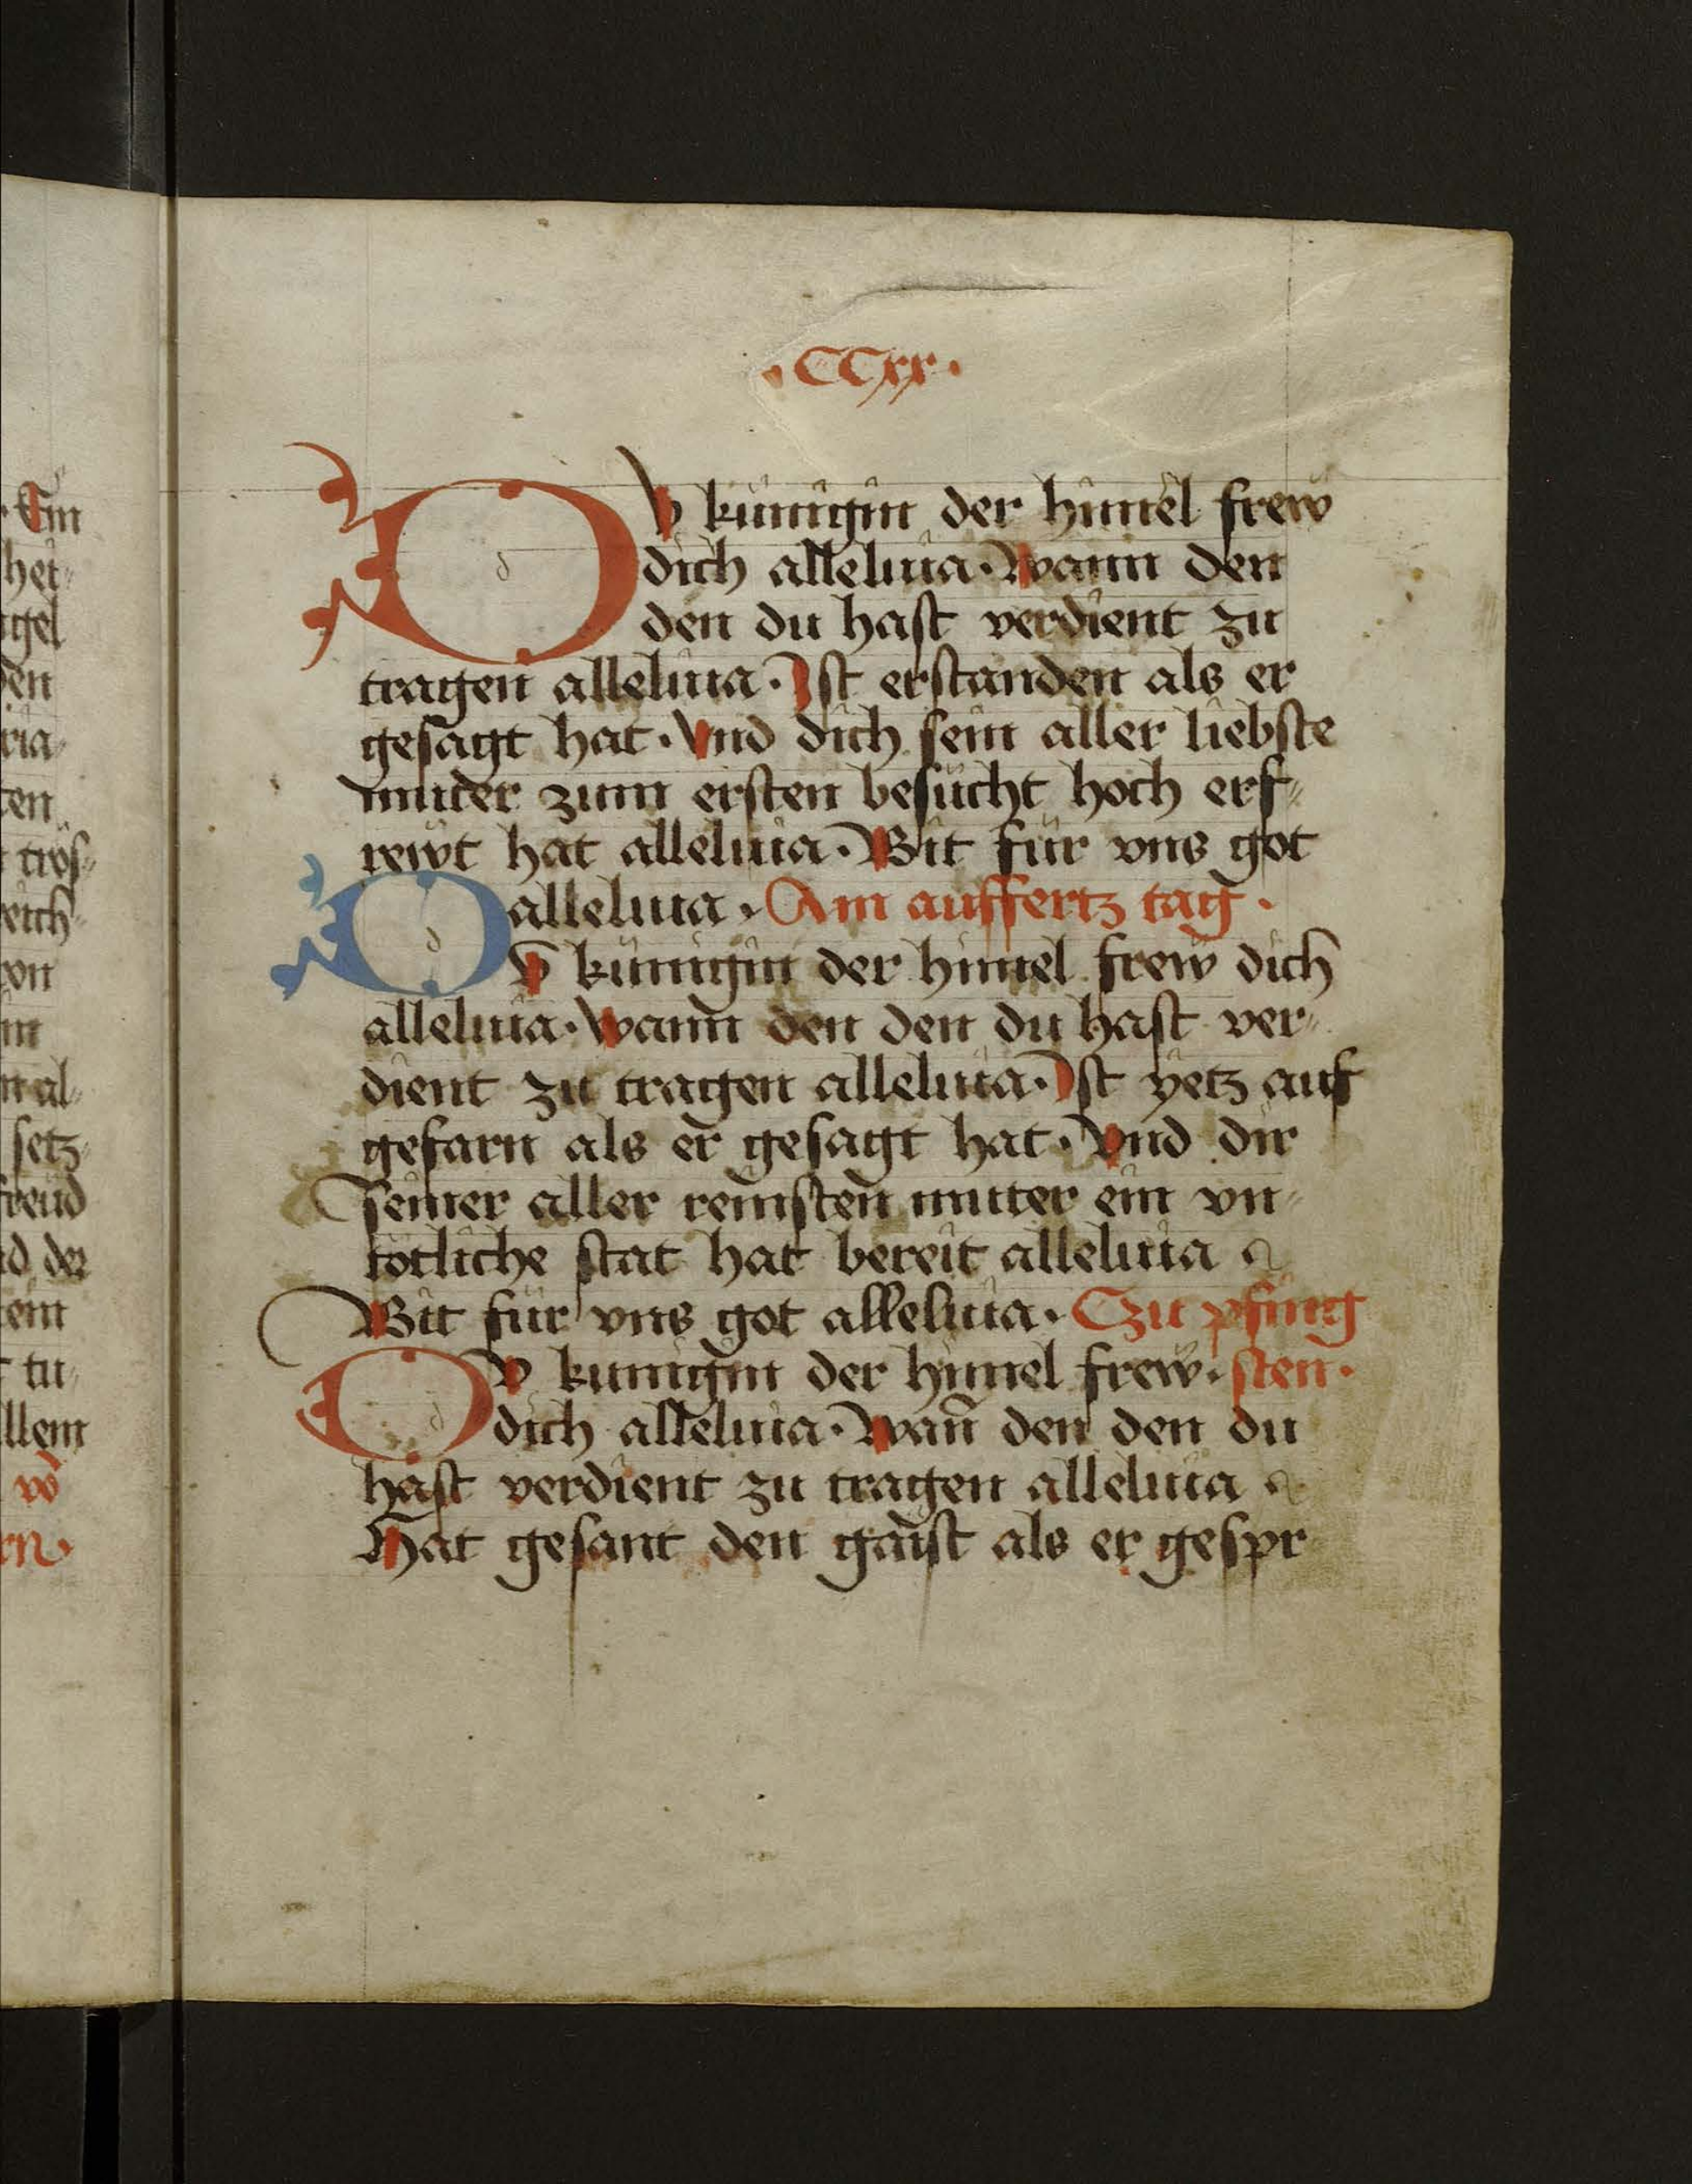 ·CCxx·
DV künigin der himel frew
dich alleluia· Wann den
den du hast verdient zu
tragen alleluia· Ist erstanden als er
gesagt hat· Vnd dich sein aller liebste
muter zum ersten besücht hoch erf⸗
rewt hat alleluia· Bit für vns got
alleluia· Am auffertz tag·
DV künigin der himel frew dich
alleluia· Wann den den du hast ver⸗
dient zu tragen alleluia· Ist yetz auf
gefarn als er gesagt hat· Vnd dir
seiner aller reinisten muter ein vn⸗
totliche stat hat bereit alleluia
Bit für vns got alleluia· Czu pfing
DV kunigin der himel frew· sten·
dich alleluia· Wan̄ den den du
hast verdient zu tragen alleluia
Hat gesant den gaist als er gespr